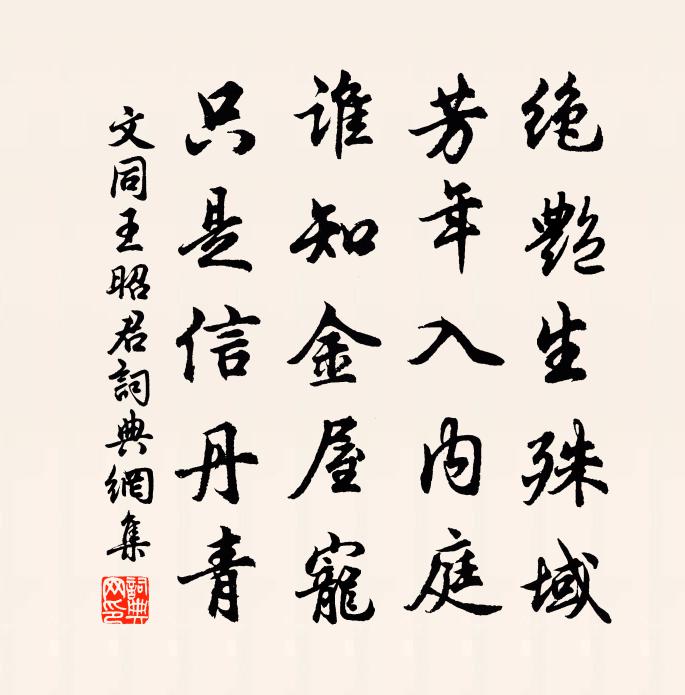 绝艷生殊域
芳年入内庭
谁知金屋寵
只是信丹青
文同王昭君詞典網集
詞典网印